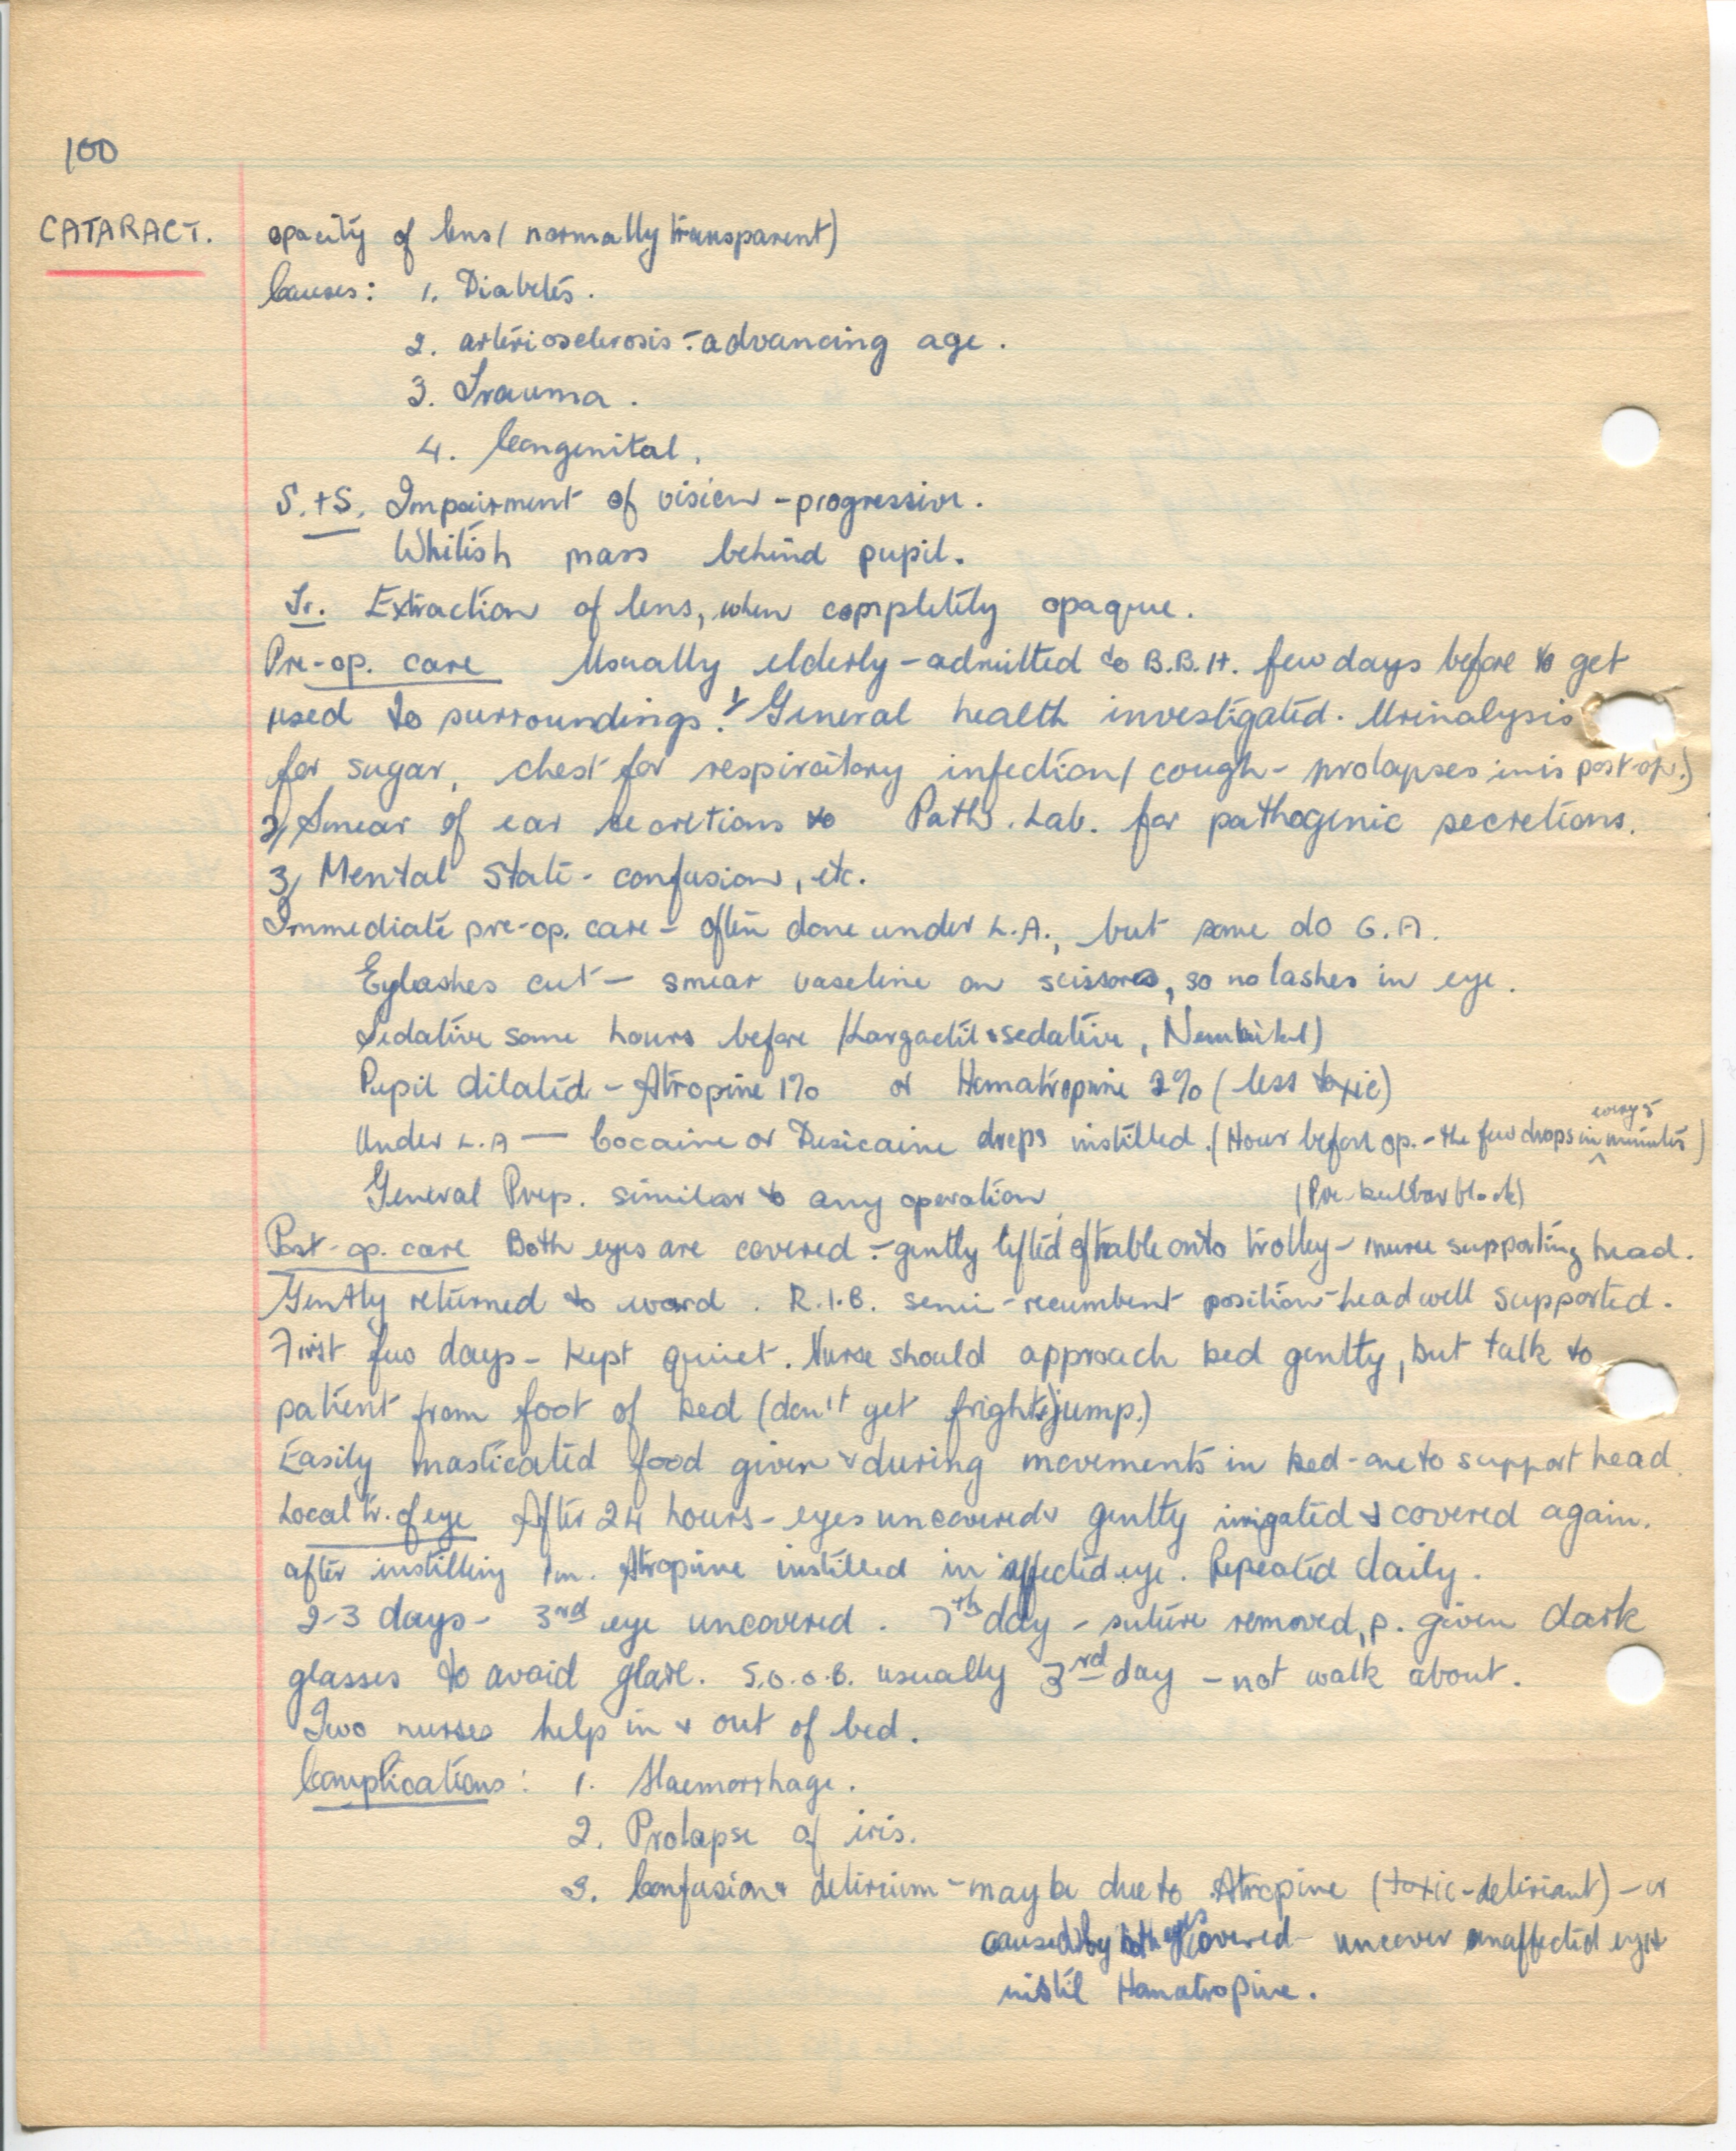 100
CATARACT. opacity of lens ( normally transparent)
Causes: 1. Diabetes.
2. arteriosclerosis - advancing age.
3. Trauma.
4. Congenital.
S.+S. Impairment of vision - progressive.
Whitish mass behind pupil.
Tr. Extraction of lens, when completely opaque.
Pre-op. care Usually elderly - admitted to B.B.H. few days before to get
used to surroundings. 1/ General health investigated. Urinalysis
for sugar, chest for respiratory infection ( cough - prolapses iris post-op.)
2/ Smear of ear secretions to Path. Lab. for pathogenic secretions.
3/ Mental State - confusion, etc.
Immediate pre-op. care - often done under L.A., but some do G.A.
Eylashes cut - smear vaseline on scissors, so no lashes in eye.
Sedative some hours before (Largactil & sedative, Nembutal)
Pupil dilated - Atropine 1% or Homatropine 2% ( less toxic)
Under L.A - Cocaine or Desicaine drops instilled. (Hour before op. - the few drops in every 5 minutes)
General Prep. similar to any operation (Pre-bulbar block)
Post-op. care Both eyes are covered - gently lifted off table onto trolley - nurse supporting head.
Gently returned to ward. R.I.B. semi-recumbent position - head well supported.
First few days - kept quiet. Nurse should approach bed gently, but talk to
patient from foot of bed (don't get fright & jump.)
Easily masticated food given & during movements in bed - one to support head.
Local tr. of eye After 24 hours - eyes uncovered & gently irrigated & covered again.
after instilling Atropine instilled in affected eye. Repeated daily.
2-3 days - 3rd eye uncovered. 7th day - suture removed, p. given dark
glasses to avoid glare. S.O.O.B. usually 3rd day - not walk about.
Two nurses help in & out of bed.
Complications: 1. Haemorrhage.
2. Prolapse of iris.
3. Confusion & delirium - may be due to Atropine (toxic-deliriant) - or
caused by both eyes covered - uncover unaffected eye &
instil Homatropine.